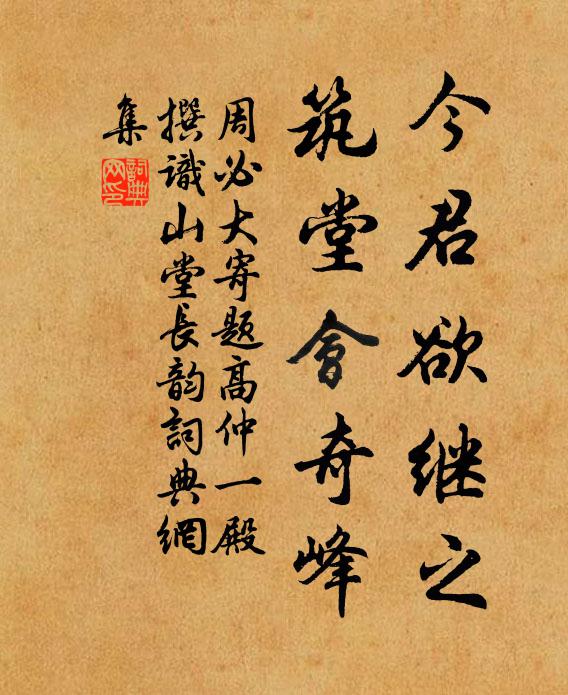 今君欲继之
筑堂會奇峰
周必大寄题高仲一殿
撰識山堂長韵詞典網
集
詞典网印